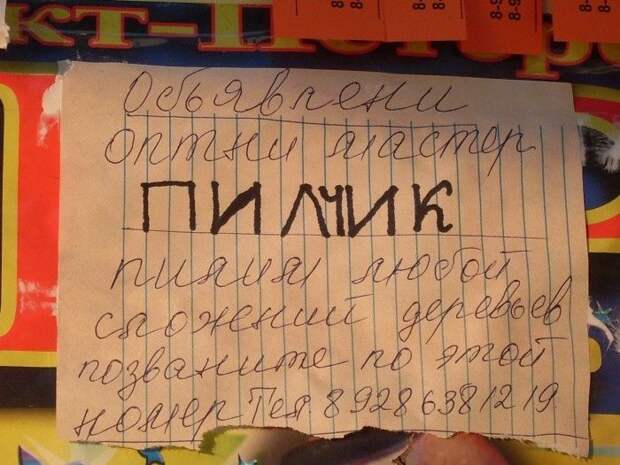 кт-Петер
Объявлени
оптни мастер
ПИЛЧИК
пилил любой
сложений деревьев
позваните по этой
номер Тел 8 928 638 12 19